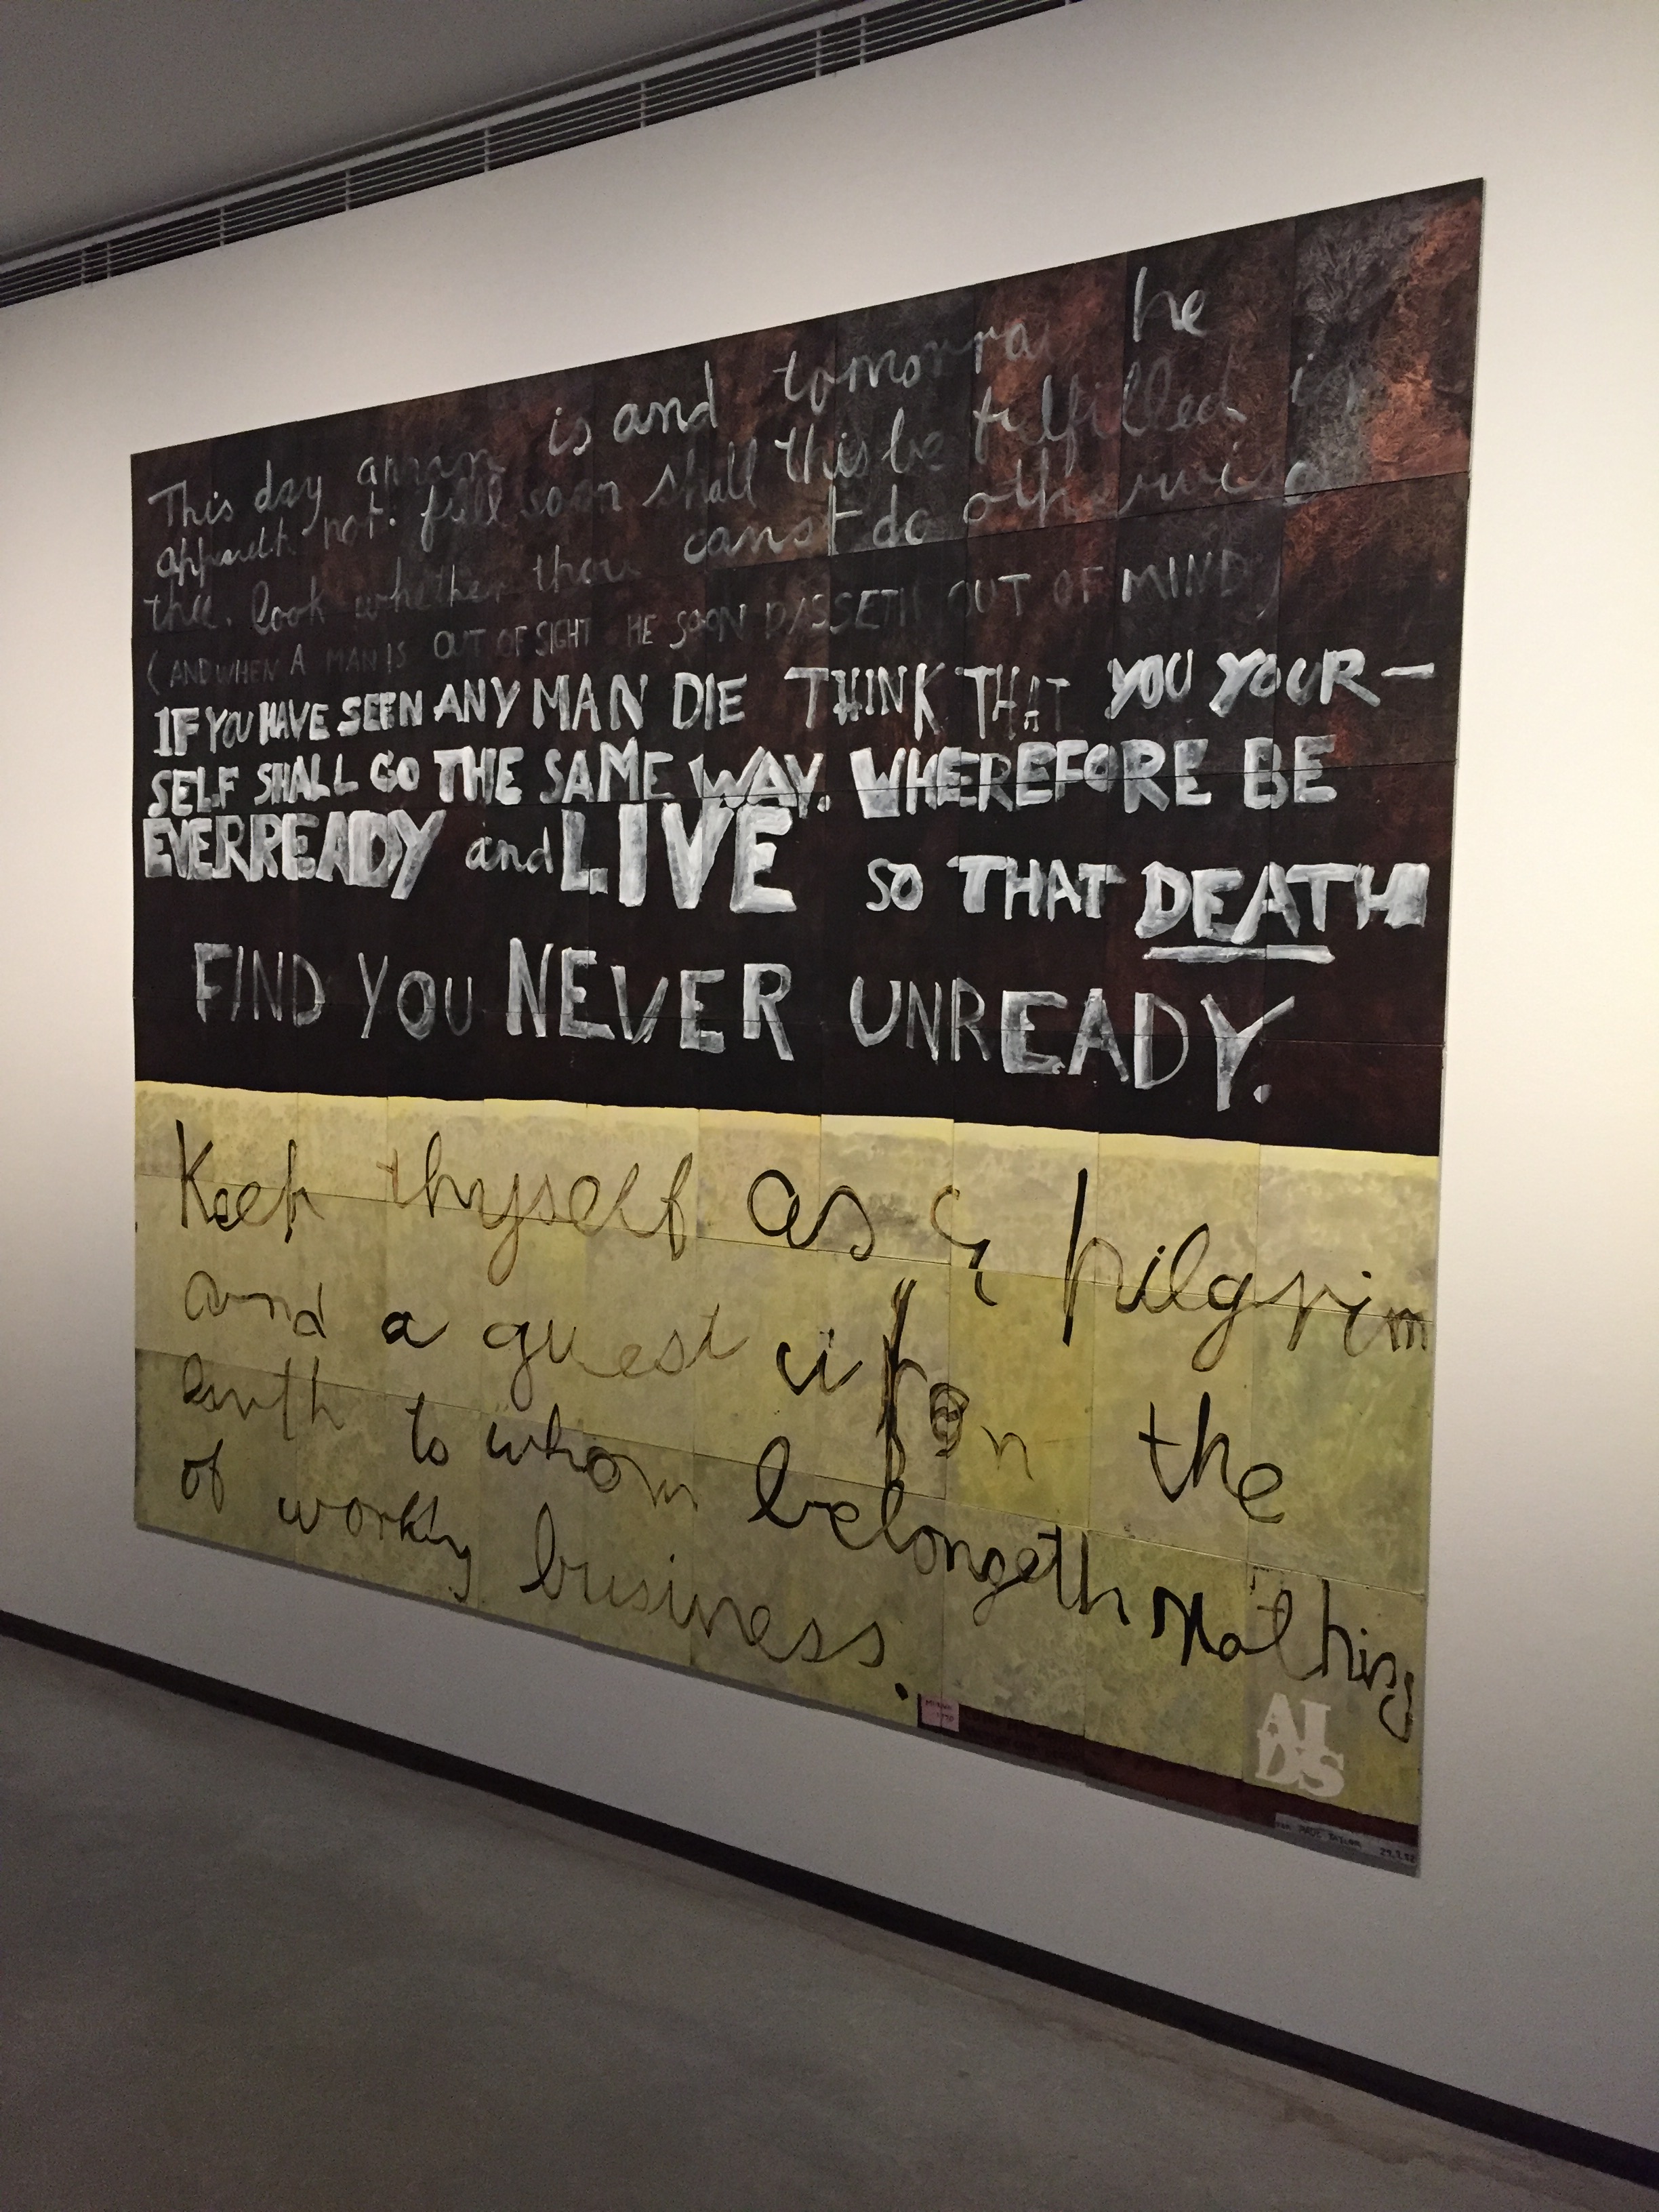 This day a man is and tomorrow he
appeareth not. full soon shall this be fulfilled in
thee. look whether thou canst do otherwise
(AND WHEN A MAN IS OUT OF SIGHT HE SOON PASSETH OUT OF MIND)
IF YOU HAVE SEEN ANY MAN DIE THINK THAT YOU YOUR—
SELF SHALL GO THE SAME WAY. WHEREFORE BE
EVERREADY and LIVE SO THAT DEATH
FIND YOU NEVER UNREADY.
Keep thyself as a pilgrim
and a guest upon the
earth to whom belongeth nothing
of workly business.
AI
DS
FOR PAUL TAYLOR